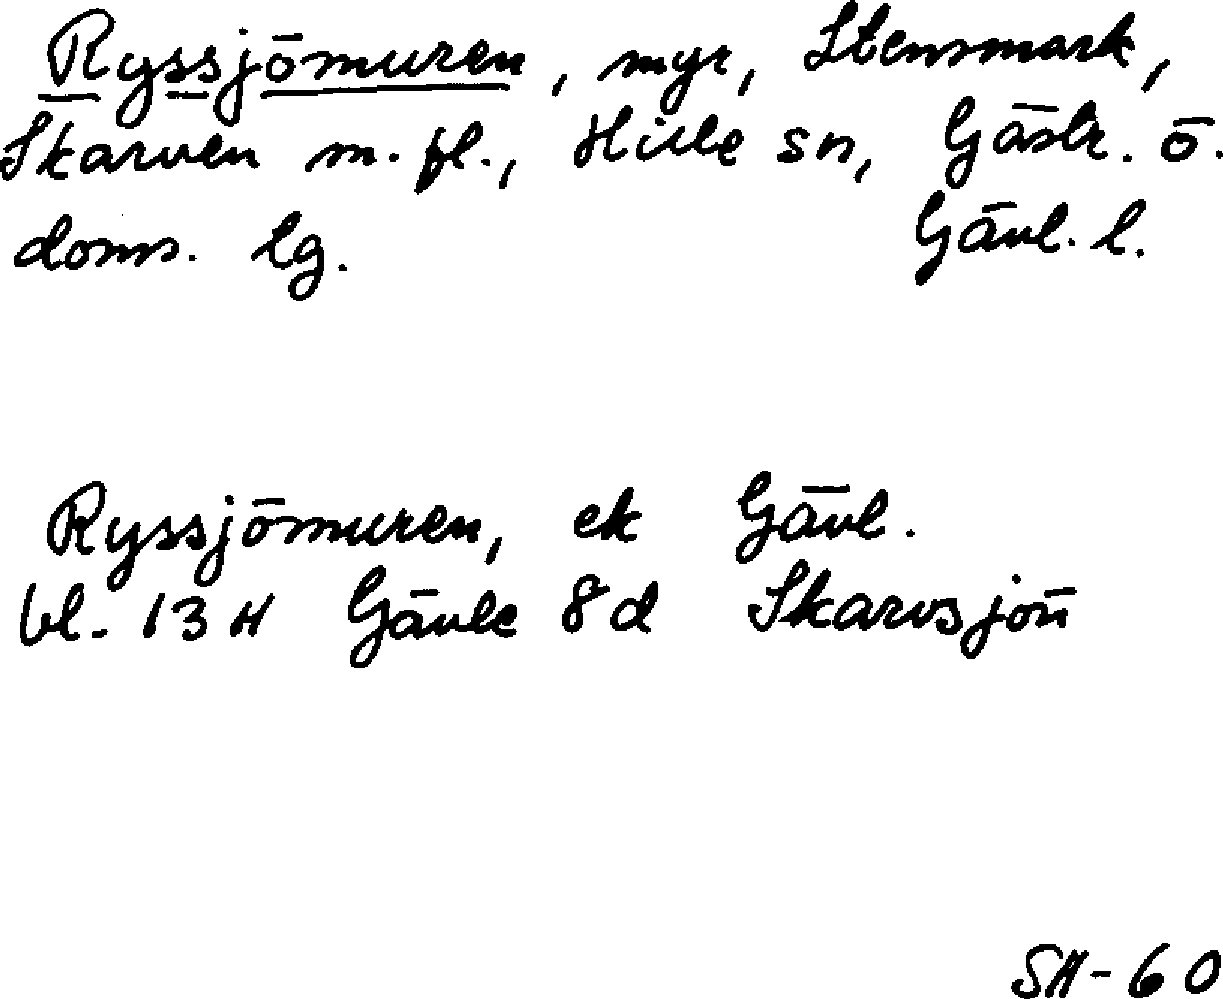 Ryssjömuren, myr, Stensmark,
Skarven m. fl., Hille sn, Gästr. ö.
doms. lg. Gävl. l.
Ryssjömuren, ek Gävl.
bl. 13 H Gävle 8 d Skarvsjön
SH-60